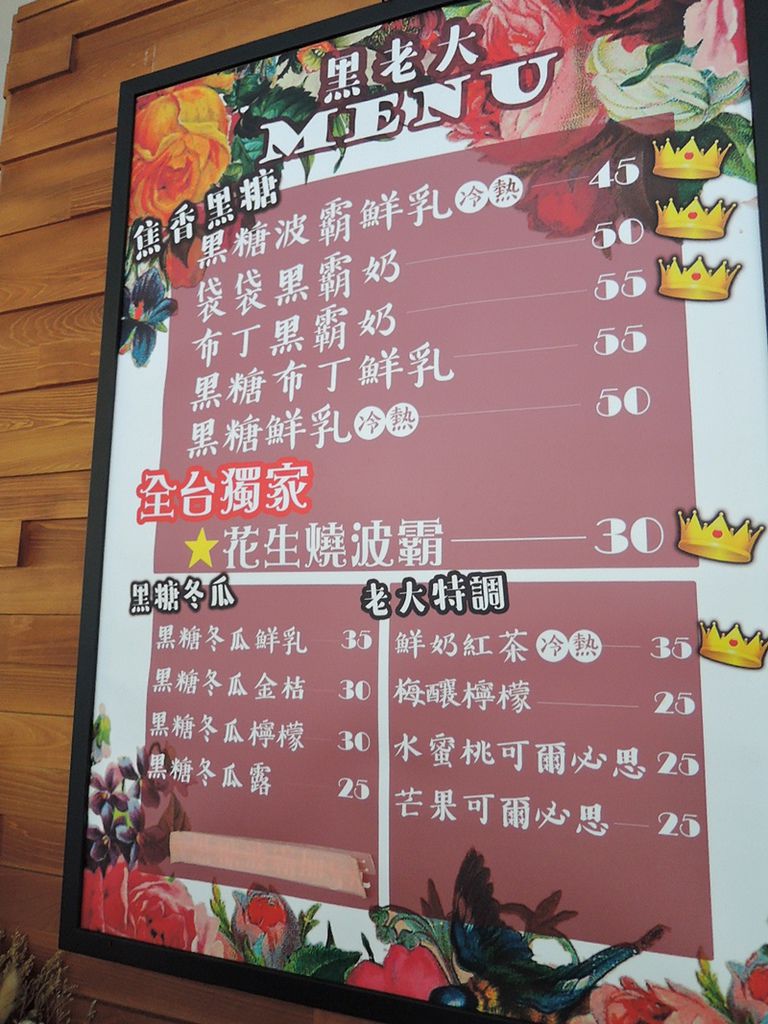 黑老大
MENU
焦香黑糖
黑糖波霸鮮乳 冷 熱 45
袋袋黑霸奶 50
布丁黑霸奶 55
黑糖布丁鮮乳 55
黑糖鮮乳 冷 熱 50
全台獨家
★花生燒波霸 30
黑糖冬瓜
黑糖冬瓜鮮乳 35
黑糖冬瓜金桔 30
黑糖冬瓜檸檬 30
黑糖冬瓜露 25
老大特調
鮮奶紅茶 冷 熱 35
梅釀檸檬 25
水蜜桃可爾必思 25
芒果可爾必思 25